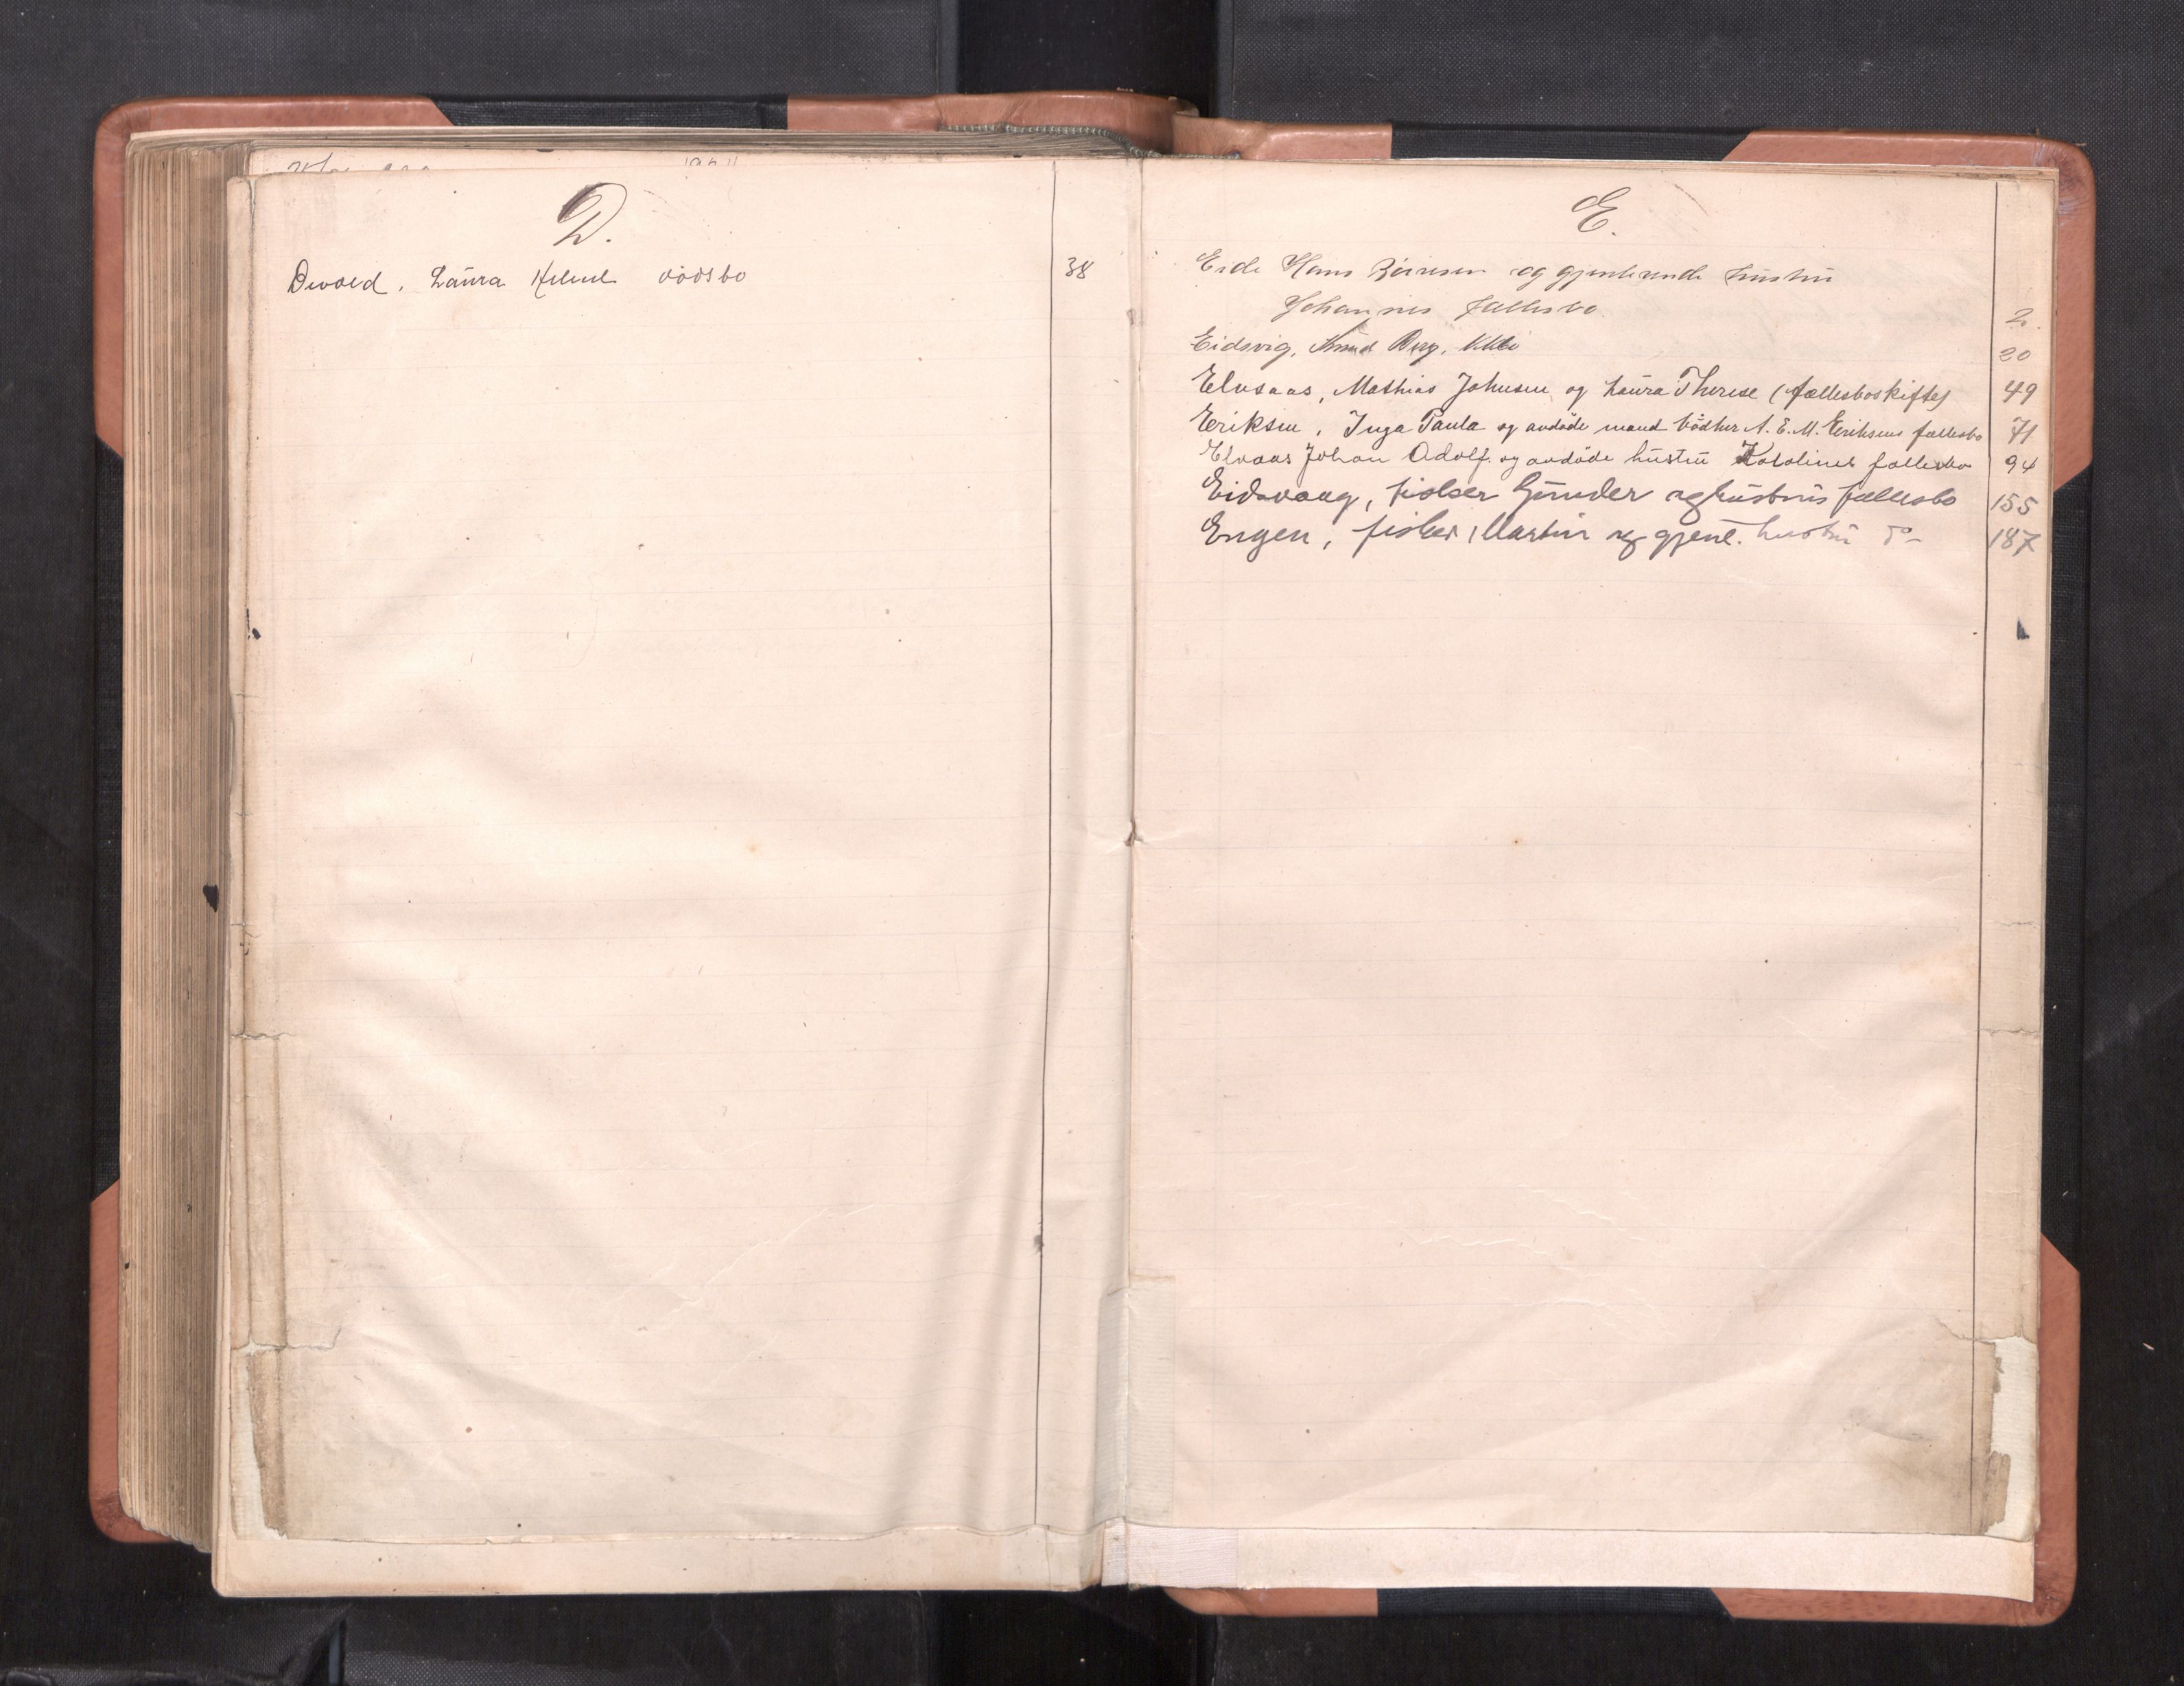 D.
Devold, Laura dödsbo 38
E.
Eide Hans og gjenlevende hustru
Johannes fællesbo. 2.
Eidsvig, Knud Berg, 20
Elvsaas, Mathias Johnsen og Laura Therese (fællesboskifte) 49
Eriksen, Inga Paula og avdöde mand bödker A. E. M. Eriksens fællesbo 71
Elvaas Johan Adolf og avdöde hustru fællesbo 94
Eidsvaag, fisker Gunder og hustrus fællesbo 155
Engen, fisker Martin og gjenl. hustru Do 187